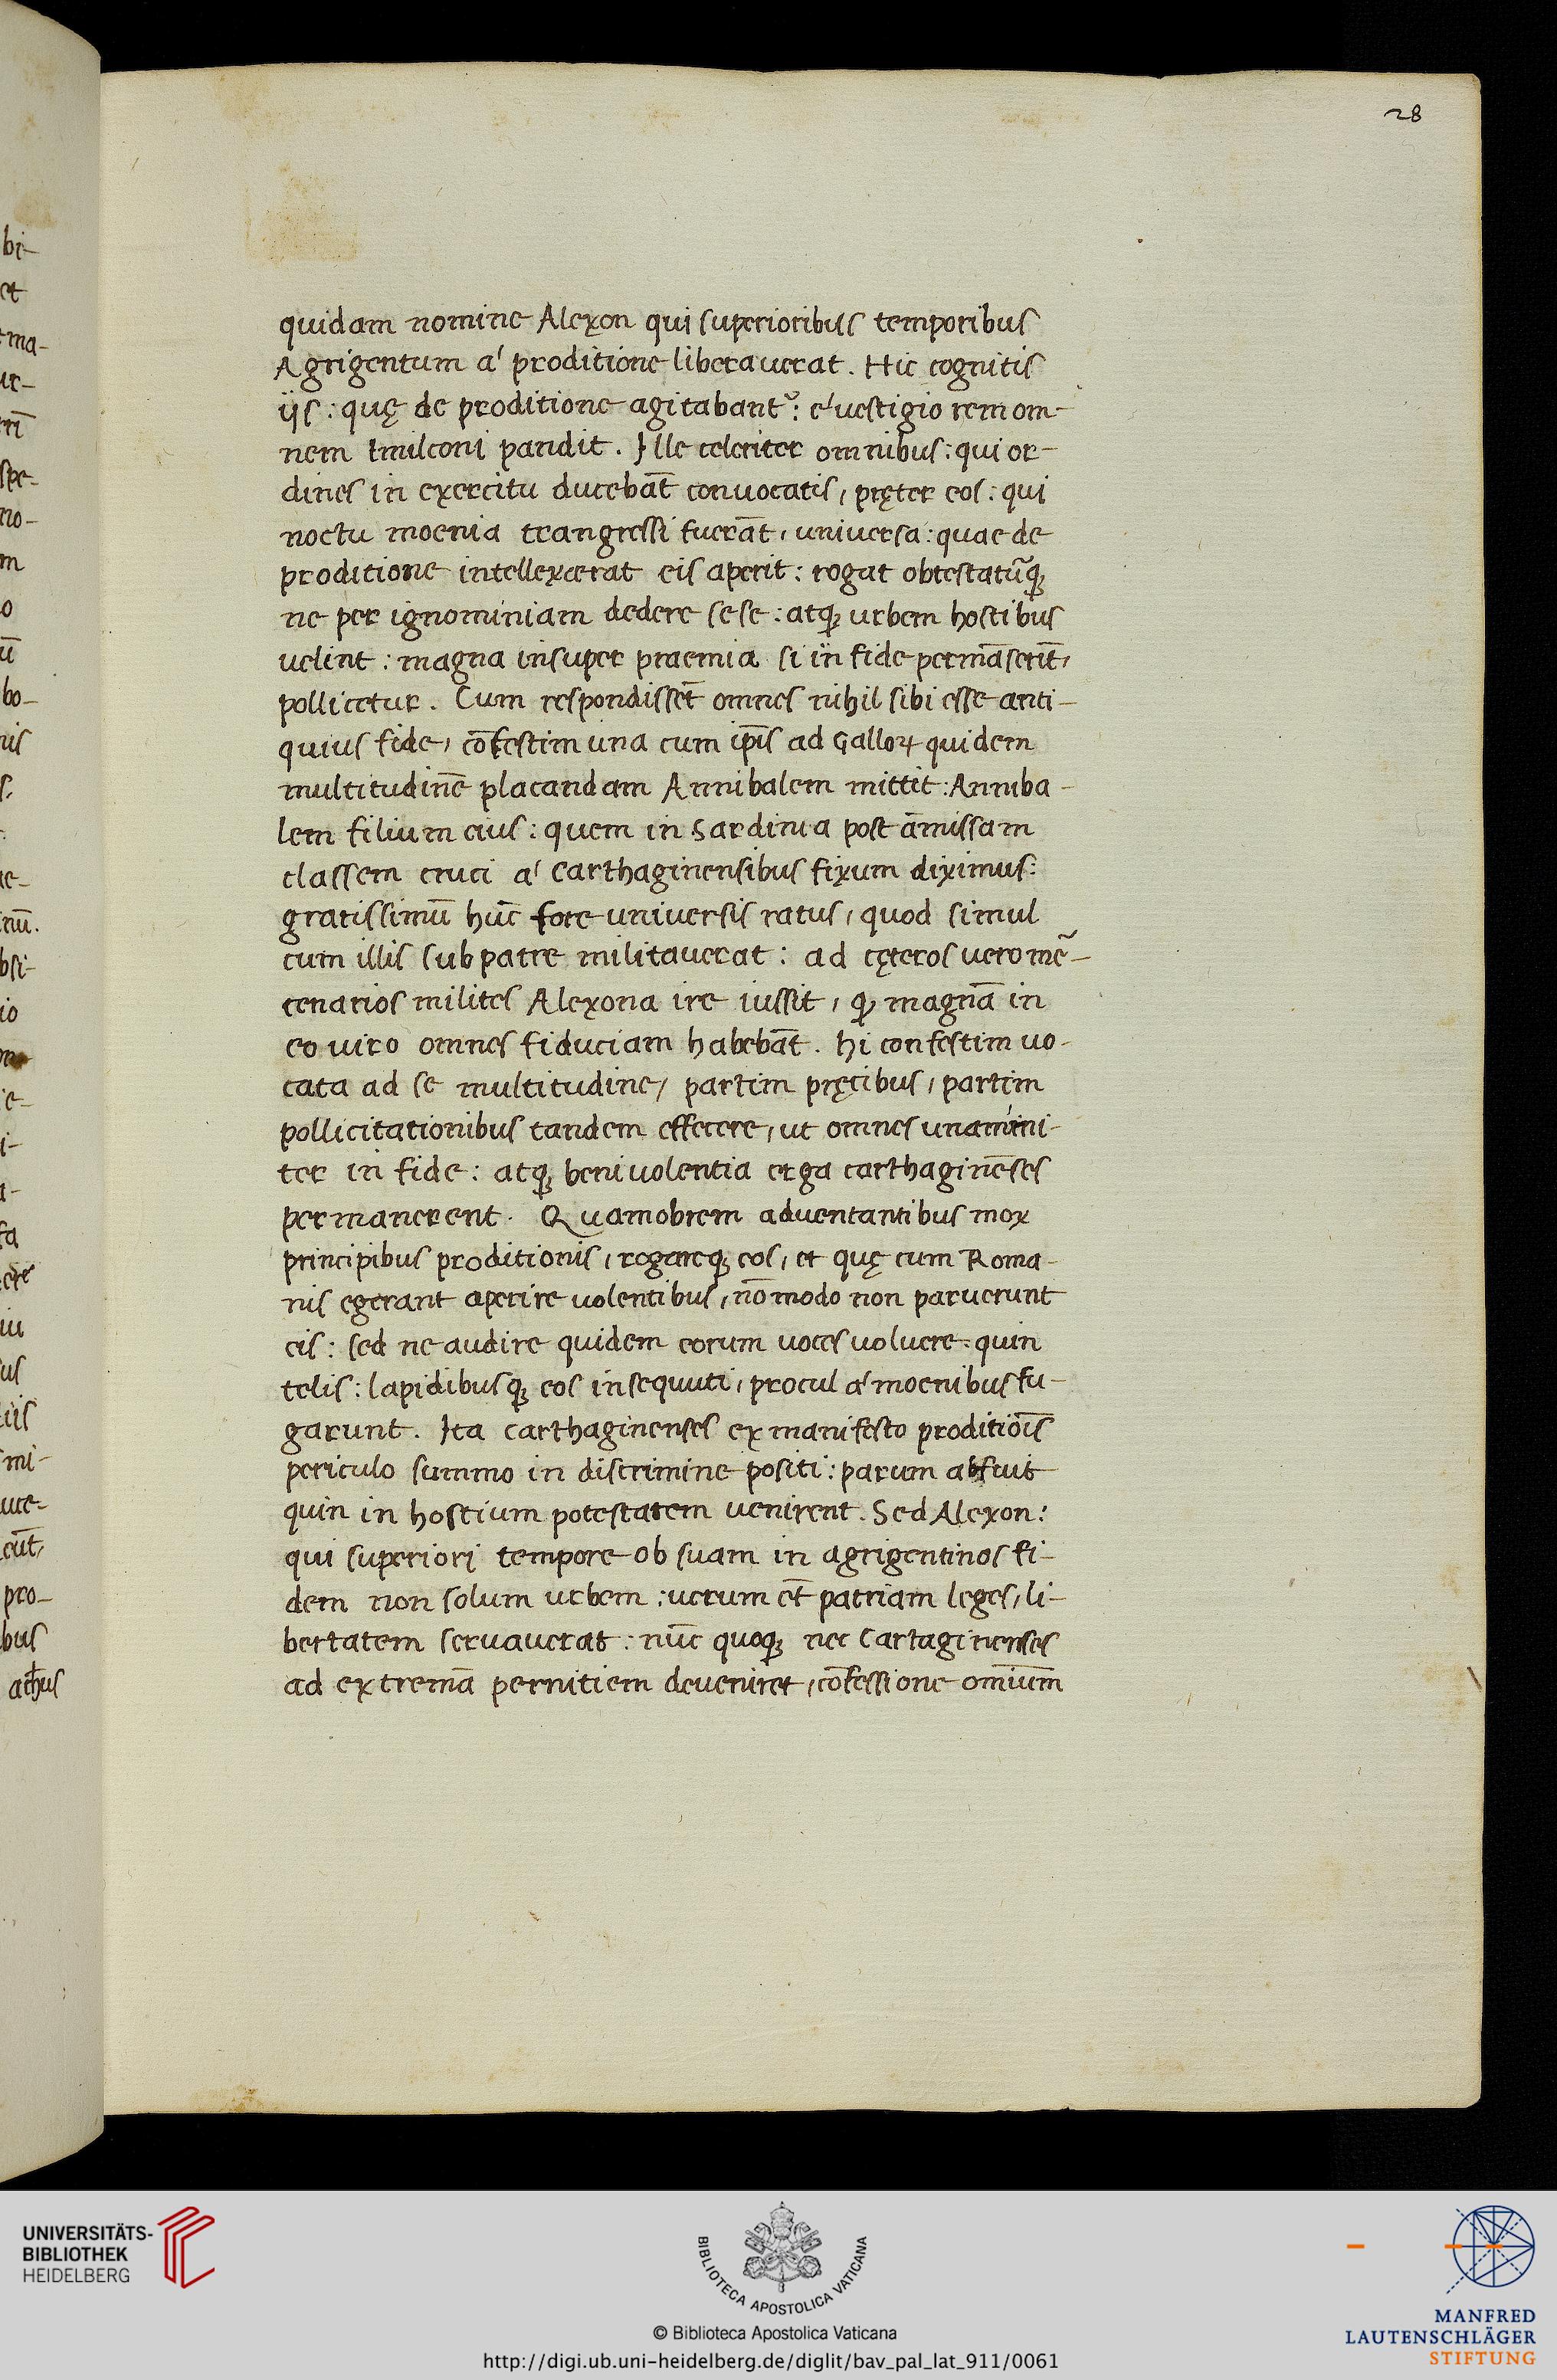 28
quidam nomine Alexon qui superioribus temporibus
Agrigentum a' proditione liberauerat. Hic cognitis
ijs: quę de proditione agitabant᷑: e' uestigio rem om-
nem Imilconi pandit. Ille celeriter omnibus: qui or-
dines in exercitu ducebāt conuocatis, pręter eos: qui
noctu moenia trangressi fuerāt, uniuersa: quae de
proditione intellexerat eis aperit: rogat obtestatᷣqꝫ
ne per ignominiam dedere sese: atqꝫ urbem hostibus
uelint: magna insuper praemia si in fide permāserīt,
pollicetur. Cum respondissēt omnes nihil sibi esse anti-
quius fide, cōfestim una cum ip̄is ad Galloꝝ quidem
multitudinē placandam Annibalem mittit: Anniba-
lem filium eius: quem in Sardinia post āmissam
classem cruci a' Carthaginensibus fixum diximus:
gratissimū hūc fore uniuersis ratus, quod simul
cum illis sub patre militauerat: ad cęteros uero mē-
cenarios milites Alexona ire iussit, qꝫ magnā in
eo uiro omnes fiduciam habebāt. Hi confestim uo-
cata ad se multitudine, partim pręcibus, partim
pollicitationibus tandem effecere, ut omnes unamini-
ter in fide: atqꝫ beniuolentia erga carthaginēses
permanerent. Quamobrem aduentantibus mox
principibus proditionis, rogareqꝫ eos, et quę cum Roma-
nis egerant aperire uolentibus, nō modo non paruerunt
eis: sed ne audire quidem eorum uoces uoluere: quin
telis: lapidibusqꝫ eos insequuti, procul a' moenibus fu-
garunt. Ita Carthaginenses ex manifesto proditiōis
periculo summo in discrimine positi: parum abfuit
quin in hostium potestatem uenirent. Sed Alexon:
qui superiori tempore ob suam in agrigentinos fi-
dem non solum urbem: uerum et̄ patriam leges, li-
bertatem seruauerat: nūc quoqꝫ nec Cartaginenses
ad extremā pernitiem deueniret, cōfessione omīum
bi-
et
ma-
ur-
spe-
no-
m
o
bo-
nis
bsi-
io
fa
iu
us
mi-
pro-
bus
UNIVERSITÄTS-
BIBLIOTHEK
HEIDELBERG
BIBLIOTECA APOSTOLICA VATICANA
© Biblioteca Apostolica Vaticana
http://digi.ub.uni-heidelberg.de/diglit/bav_pal_lat_911/0061
MANFRED
LAUTENSCHLÄGER
STIFTUNG